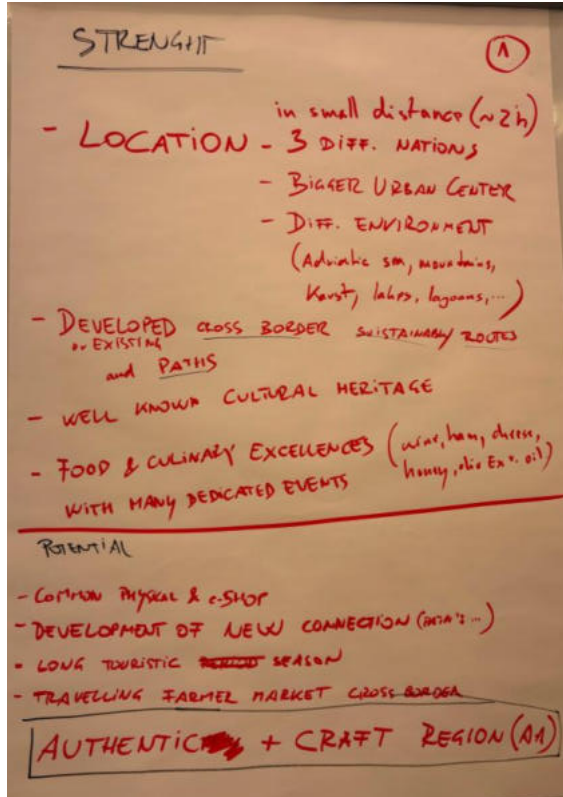 STRENGHT
1
in small distance (~2h)
- LOCATION - 3 DIFF. NATIONS
- BIGGER URBAN CENTER
- DIFF. ENVIRONMENT
(Adriatic sea, mountains,
Karst, lakes, lagoons,...)
- DEVELOPED CROSS BORDER SUSTAINABLY ROUTES
or EXISTING
and PATHS
- WELL KNOWN CULTURAL HERITAGE
- FOOD & CULINARY EXCELLENCES (wine, ham, cheese,
honey, olio Ex v. oil)
WITH MANY DEDICATED EVENTS
POTENTIAL
- COMMON PHYSICAL & e-SHOP
- DEVELOPMENT OF NEW CONNECTION
- LONG TOURISTIC SEASON
- TRAVELLING FARMER MARKET CROSS BORDER
AUTHENTIC + CRAFT REGION (A1)